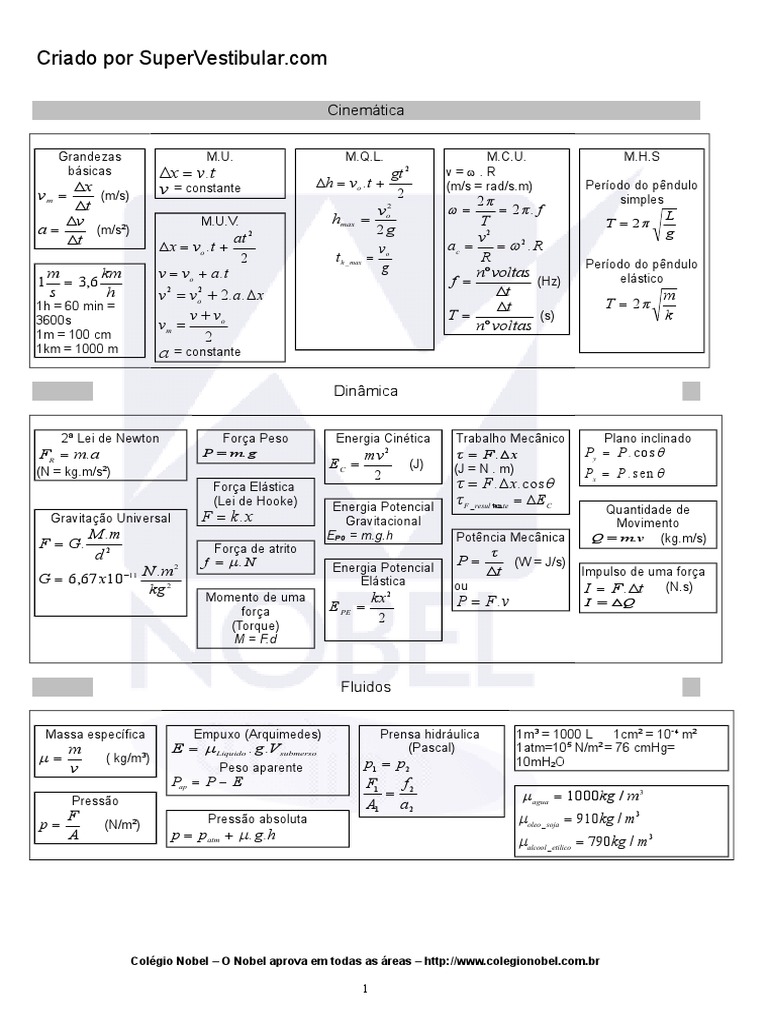 Criado por SuperVestibular.com
Cinemática
Grandezas
básicas
v_m = Δx/Δt (m/s)
a = Δv/Δt (m/s²)
1 m/s = 3,6 km/h
1h = 60 min =
3600s
1m = 100 cm
1km = 1000 m
M.U.
Δx = v.t
v = constante
M.U.V.
Δx = v_o.t + at²/2
v = v_o + a.t
v² = v_o² + 2.a.Δx
v_m = (v + v_o)/2
a = constante
M.Q.L.
Δh = v_o.t + gt²/2
h_max = v_o²/2g
t_h_max = v_o/g
M.C.U.
v = ω . R
(m/s = rad/s.m)
ω = 2π/T = 2π.f
a_c = v²/R = ω².R
f = nº voltas/Δt (Hz)
T = Δt/nº voltas (s)
M.H.S
Período do pêndulo
simples
T = 2π√(L/g)
Período do pêndulo
elástico
T = 2π√(m/k)
Dinâmica
2ª Lei de Newton
F_R = m.a
(N = kg.m/s²)
Gravitação Universal
F = G. M.m/d²
G = 6,67x10⁻¹¹ N.m²/kg²
Força Peso
P = m.g
Força Elástica
(Lei de Hooke)
F = k.x
Força de atrito
f = μ.N
Momento de uma
força
(Torque)
M = F.d
Energia Cinética
E_C = mv²/2 (J)
Energia Potencial
Gravitacional
E_PG = m.g.h
Energia Potencial
Elástica
E_PE = kx²/2
Trabalho Mecânico
τ = F.Δx
(J = N . m)
τ = F.Δx.cosθ
τ_F_resultante = ΔE_C
Potência Mecânica
P = τ/Δt (W = J/s)
ou
P = F.v
Plano inclinado
P_y = P.cosθ
P_x = P.senθ
Quantidade de
Movimento
Q = m.v (kg.m/s)
Impulso de uma força
I = F.Δt (N.s)
I = ΔQ
NOBEL
Fluidos
Massa específica
μ = m/v ( kg/m³)
Pressão
p = F/A (N/m²)
Empuxo (Arquimedes)
E = μ_Líquido.g.V_submerso
Peso aparente
P_ap = P − E
Pressão absoluta
p = p_atm + μ.g.h
Prensa hidráulica
(Pascal)
p₁ = p₂
F₁/A₁ = f₂/a₂
1m³ = 1000 L 1cm² = 10⁻⁴ m²
1atm=10⁵ N/m²= 76 cmHg=
10mH₂O
μ_agua = 1000kg / m³
μ_oleo_soja = 910kg / m³
μ_alcool_etilico = 790kg / m³
Colégio Nobel – O Nobel aprova em todas as áreas – http://www.colegionobel.com.br
1